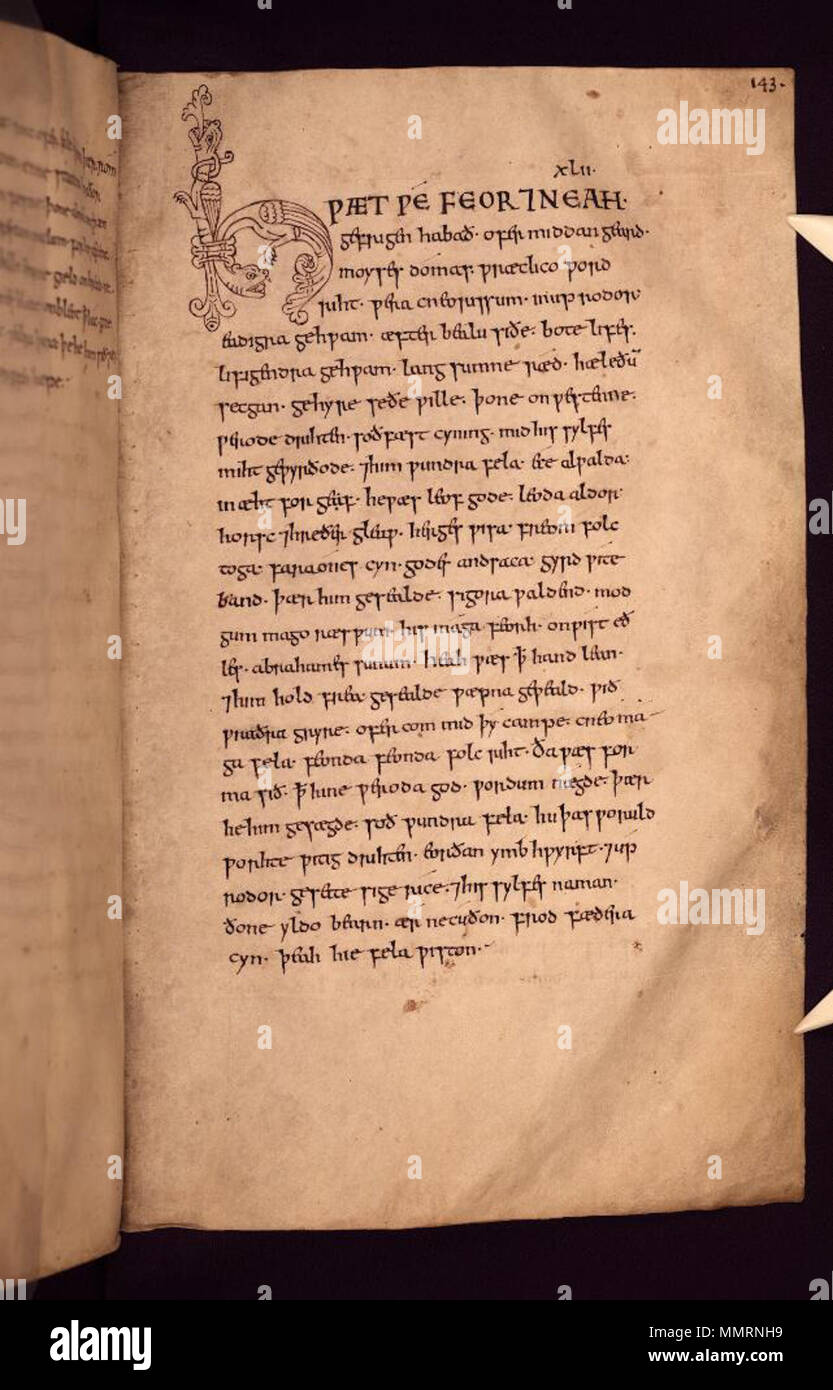 143.
XLII.
HǷÆT ǷE FEOR ⁊ NEAH·
gefrigen habað· ofer middangeard·
moyses domas· ƿræclico ƿord
riht· ƿera cneorissum· inuprodor
eadigra gehƿam· æfter bealusiðe· bote lifes·
lifigendra gehƿam· langsumne ræd· hæleðū
secgan· gehyre seðe ƿille· þone on ƿestenne·
ƿeroda drihten· soðfæst cyning· mid his sylfes
miht geƿyrðode· ⁊him ƿundra fela· ece alƿalda·
in æht forgeaf· heƿæs leof gode· leoda aldor·
horsc ⁊hreðergleaƿ· herges ƿisa· freom folc
toga· faraones cyn· godes andsaca· gyrdƿite
band· þær him gesealde· sigora ƿaldend· mod
gum magoræsƿan· his maga feorh· onƿist eð
les· abrahames sunum· heah ƿæs þ̄ handlean·
⁊him hold frea· gesealde ƿæpna geƿeald· ƿið
ƿraðra gryre· ofercom mid þy campe· cneoma
ga fela· feonda feonda folcriht· ða ƿæs for
ma sið· þ̄ hine ƿeroda god· ƿordum nægde· þær
he him gesægde· soðƿundra fela· hu þas ƿoruld
ƿorhte ƿitig drihten· eorðan ymbhƿyrft· ⁊up
rodor· gesette sigerice· ⁊his sylfes naman·
ðone yldo bearn· ær ne cuðon· frod fædera
cyn· þeah hie fela ƿiston·
alamy
alamy
alamy
Image ID: MMRNH9
www.alamy.com